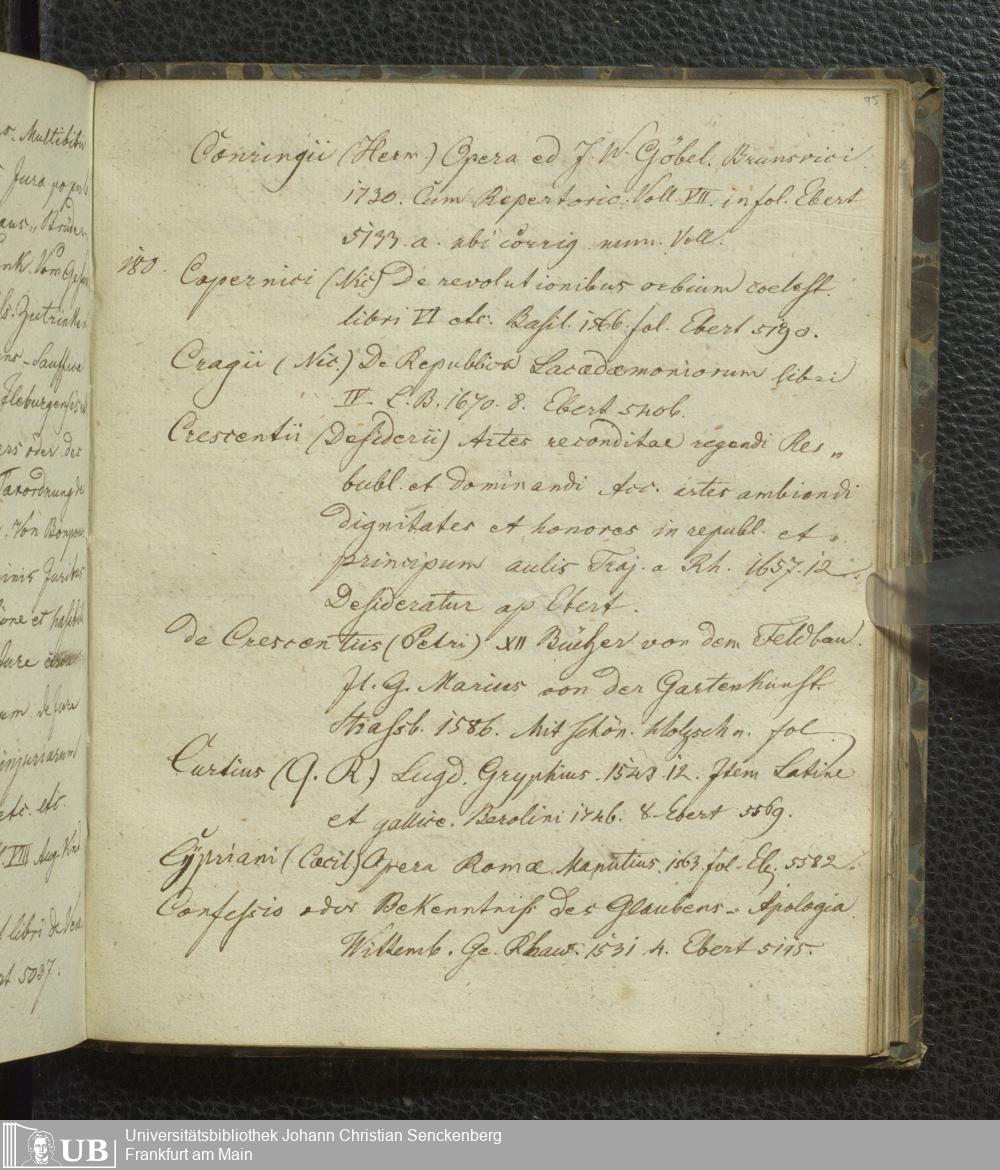 95
Conringii (Herm.) Opera ed J. W. Göbel. Brunsvici
1730. Cum Repertorio. Voll. VII. in fol. Ebert
5133. a. ubi corrig. num. Voll.
180. Copernici (Nic) De revolutionibus orbium coelest.
libri VI etc. Basil. 1566. fol. Ebert 5190.
Cragii (Nic.) De Republica Lacedæmoniorum libri
IV. L. B. 1670. 8. Ebert 5406.
Crescentii (Desiderii) Artes reconditae regendi Res„
bubl. et dominandi Acc. artes ambiendi
dignitates et honores in republ. et
principum aulis Traj. a Rh. 1657. 12.
Desideratur ap Ebert.
de Crescentiis (Petri) XII Bücher von dem Feldbau.
It. G. Marius von der Gartenkunst.
Strassb. 1586. Mit schön. Holzschn. fol
Curtius (Q. R.) Lugd. Gryphius. 1543. 12. Item Latine
et gallice. Berolini 1746. 8. Ebert 5569.
Cypriani (Cœcil) Opera Romæ Manutius. 1563. fol. Eb. 5582.
Confessio oder Bekenntniß des Glaubens. Apologia
Wittemb. Ge. Rhaw. 1531 4. Ebert 5145.
s. Multibibis
Jura popul
aus„ Brüder
Zutrinken
Sauffen
ers oder des
Taxordnung des
. Von
inis Juribus
one et
Jure
um de jure
injuriarum
etc. etc.
VIII Aug. Vind
libri de
rt 5037.
UB
Universitätsbibliothek Johann Christian Senckenberg
Frankfurt am Main